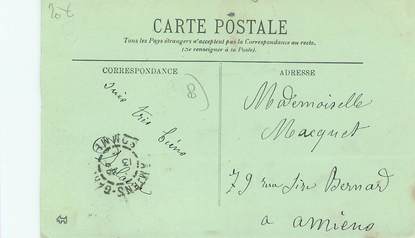 20€
CARTE POSTALE
Tous les Pays étrangers n'acceptent pas la Correspondance au recto.
(Se renseigner à la Poste).
CORRESPONDANCE
ADRESSE
suis très bien
80
Mademoiselle
Macquet
79 rue Bernard
a amiens
AMIENS-GARE
SOMME